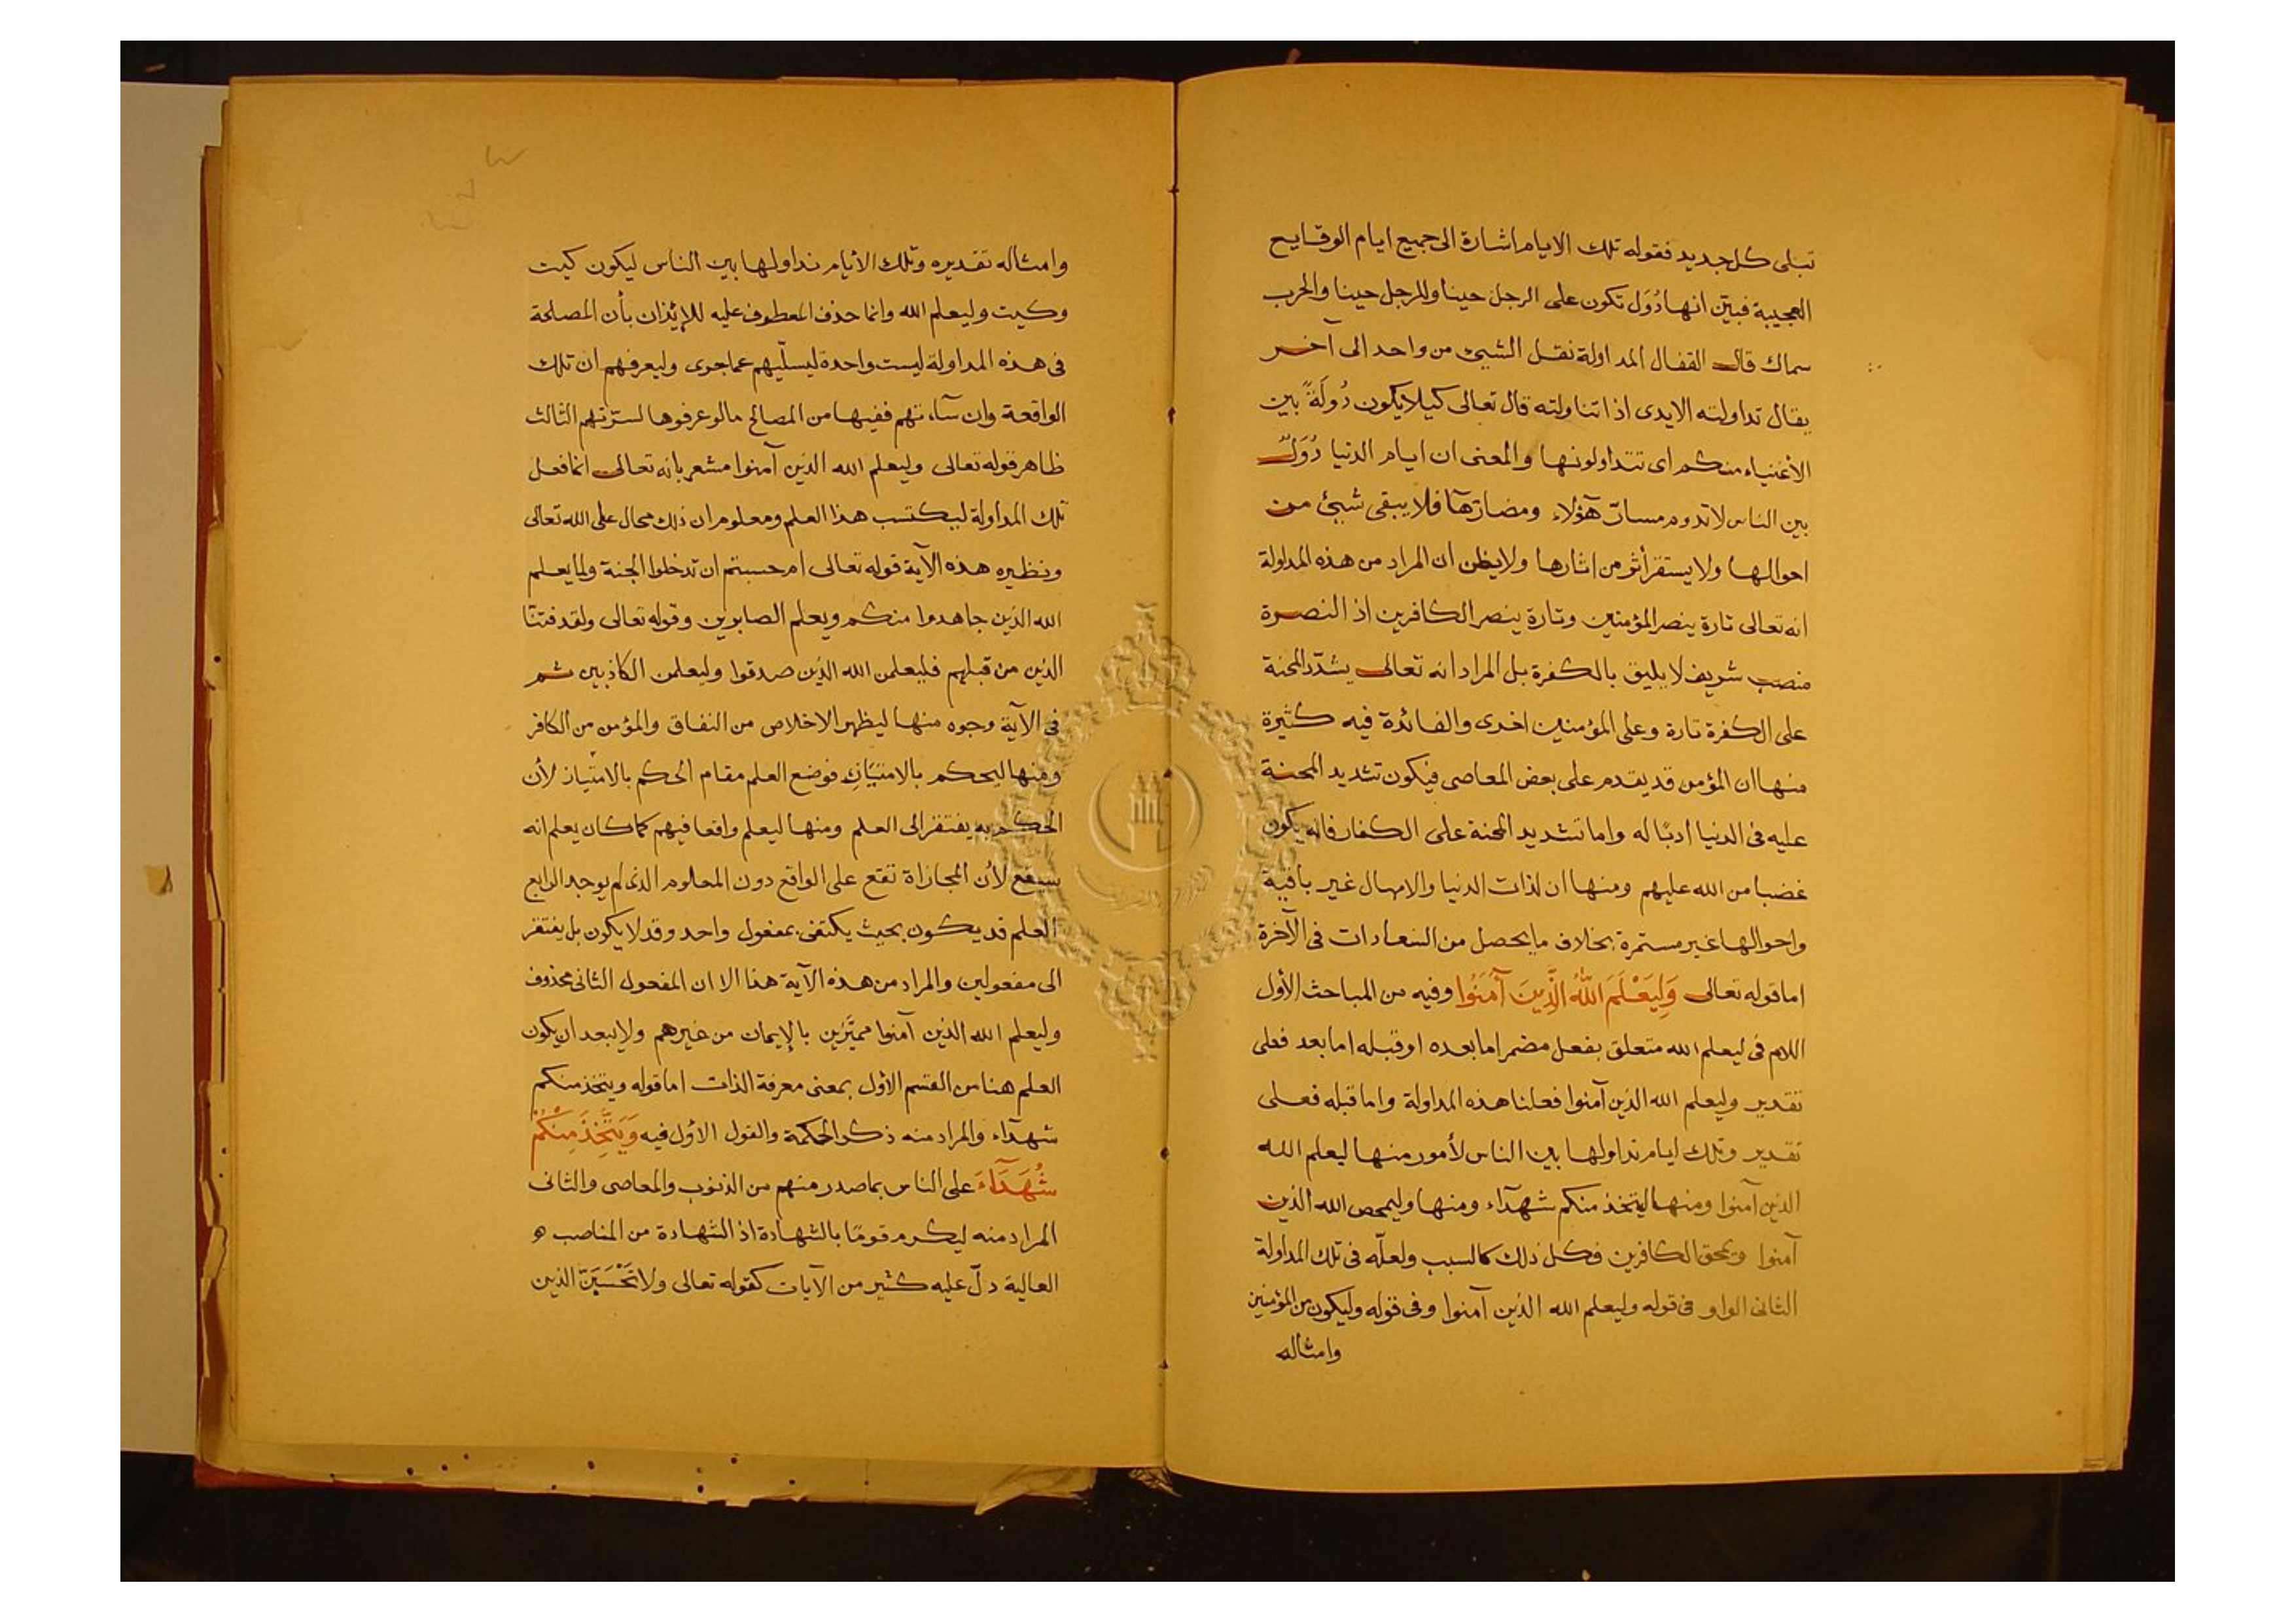 تبلى كل جديد فقوله تلك الايام اشارة الى جميع ايام الوقايع
العجيبة فبيّن انها دُوَل تكون على الرجل حينا وللرجل حينا والحرب
سماك قال القفال المداولة نقل الشيئ من واحد الى آخر
يقال تداولته الايدى اذا تناولته قال تعالى كيلا يكون دُولَةً بين
الأغنياء منكم اى تتداولونها والمعنى ان ايام الدنيا دُوَلٌ
بين الناس لا تدوم مسارّ هؤلاء ومضارّها فلا يبقى شيئ من
احوالها ولا يستقر أثر من اثارها ولا يظن ان المراد من هذه المداولة
انه تعالى تارة ينصر المؤمنين وتارة ينصر الكافرين اذ النصرة
منصب شريف لا يليق بالكفرة بل المراد انه تعالى يشدّد المحنة
على الكفرة تارة وعلى المؤمنين اخرى والفائدة فيه كثيرة
منها ان المؤمن قد يقدم على بعض المعاصى فيكون تشديد المحنة
عليه فى الدنيا ادبًا له واما تشديد المحنة على الكفار فانه يكون
غضبا من الله عليهم ومنها ان لذات الدنيا والامهال غير باقية
واحوالها غير مستمرة بخلاف ما يحصل من السعادات فى الآخرة
اما قوله تعالى وَلِيَعْلَمَ اللّٰهُ الَّذِينَ آمَنُوا وفيه من المباحث الأول
اللام فى ليعلم الله متعلق بفعل مضمر اما بعده او قبله اما بعد فعلى
تقدير وليعلم الله الذين آمنوا فعلنا هذه المداولة واما قبله فعلى
تقدير وتلك ايام نداولها بين الناس لأمور منها ليعلم الله
الذين آمنوا ومنها ليتخذ منكم شهدآء ومنها وليمحص الله الذين
آمنوا ويمحق الكافرين فكل ذلك كالسبب ولعلّه فى تلك المداولة
الثانى الواو فى قوله وليعلم الله الذين آمنوا وفى قوله وليكون من المؤمنين
وامثاله
وامثاله تقديره وتلك الأيام نداولها بين الناس ليكون كيت
وكيت وليعلم الله وانما حذف المعطوف عليه للإيذان بأن المصلحة
فى هذه المداولة ليست واحدة ليسلّيهم عما جرى وليعرفهم ان تلك
الواقعة وان سآءتهم ففيها من المصالح ما لو عرفوها لسرّتهم الثالث
ظاهر قوله تعالى وليعلم الله الذين آمنوا مشعر بانه تعالى انما فعل
تلك المداولة ليكتسب هذا العلم ومعلوم ان ذلك محال على الله تعالى
ونظيره هذه الآية قوله تعالى ام حسبتم ان تدخلوا الجنة ولما يعلم
الله الذين جاهدوا منكم ويعلم الصابرين وقوله تعالى ولقد فتنّا
الذين من قبلهم فليعلمن الله الذين صدقوا وليعلمن الكاذبين ثم
فى الآية وجوه منها ليظهر الاخلاص من النفاق والمؤمن من الكافر
ومنها ليحكم بالامتيازِ فوضع العلم مقام الحكم بالامتياز لأن
الحكم به يفتقر الى العلم ومنها ليعلم واقعا فيهم كما كان يعلم انه
سيقع لأن المجازاة تقع على الواقع دون المعلوم الذى لم يوجد الرابع
العلم قد يكون بحيث يكتفى بمفعول واحد وقد لا يكون بل يفتقر
الى مفعولين والمراد من هذه الآية هذا الا ان المفعول الثانى محذوف
وليعلم الله الذين آمنوا مميَّزين بالإيمان من غيرهم ولا يبعد ان يكون
العلم هنا من القسم الأول بمعنى معرفة الذات اما قوله ويتخذ منكم
شهدآء والمراد منه ذكر الحكمة والقول الأول فيه وَيَتَّخِذَ مِنْكُمْ
شُهَدَآءَ على الناس بما صدر منهم من الذنوب والمعاصى والثانى
المراد منه ليكرم قومًا بالشهادة اذ الشهادة من المناصب
العالية دلّ عليه كثير من الآيات كقوله تعالى ولا تَحْسَبَنَّ الذين